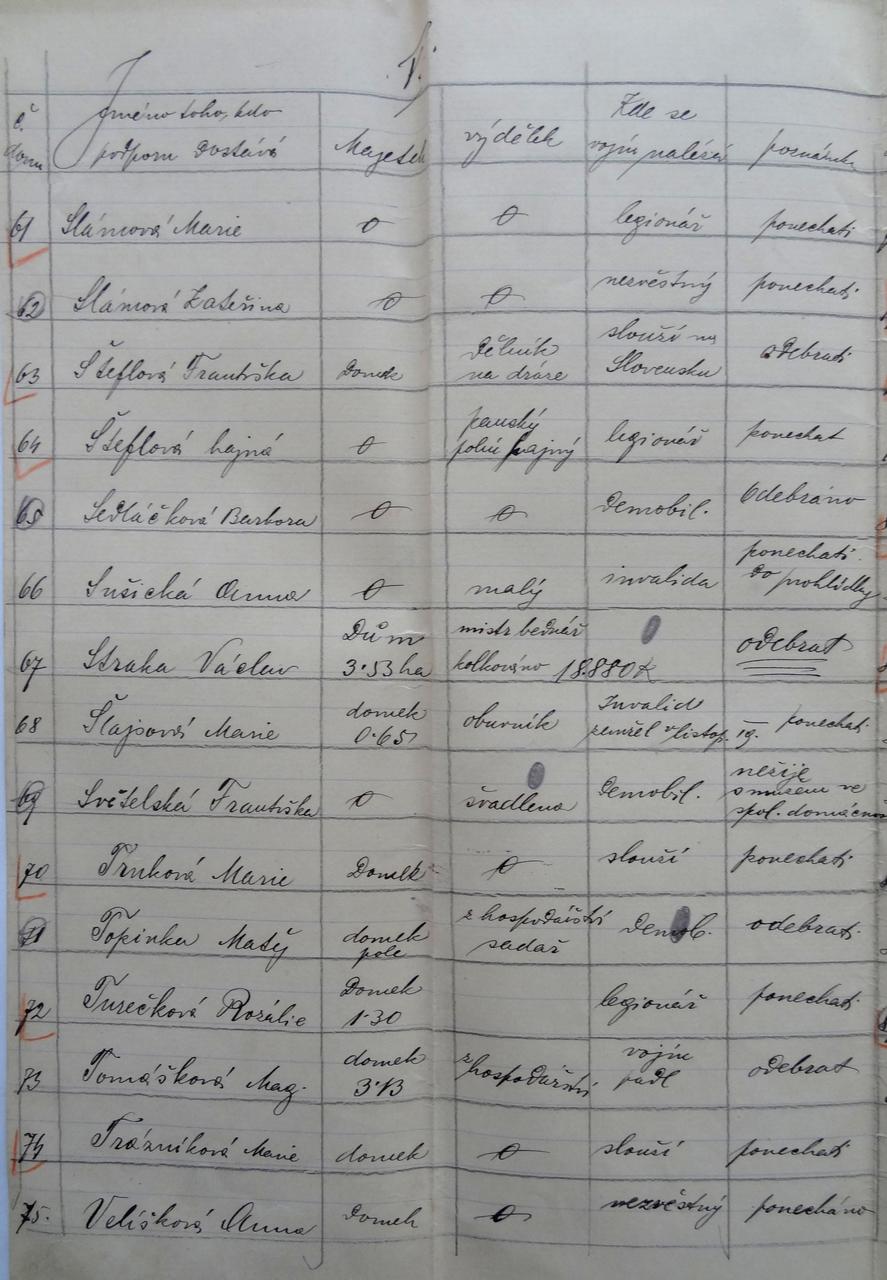 č. domu | Jméno toho, kdo podporu dostává | Majetek | výdělek | Kde se vojín nalézá | poznámka
61 Slámová Marie | 0 | 0 | legionář | ponechati
62 Slámová Kateřina | 0 | 0 | nezvěstný | ponechati
63 Šteflová Františka | Domek | dělník na dráze | slouží na Slovensku | odebrati
64 Šteflová hajná | 0 | panský polní hajný | legionář | ponechat
65 Sedláčková Barbora | 0 | 0 | Demobil. | Odebráno
66 Sušická Anna | 0 | malý | invalida | ponechati do prohlídky
67 Straka Václav | Dům 3·53 ha | mistr bednář kolkováno 18.880 K | odebrat
68 Šlajsová Marie | domek 0·65 | obuvník | Invalid zemřel v listop. 19. | ponechati
69 Světelská Františka | 0 | švadlena | Demobil. | nežije s mužem ve spol. domácnos
70 Trnková Marie | Domek | 0 | slouží | ponechati
71 Topinka Matěj | domek pole | z hospodářství sadař | Demob. | odebrati
72 Turečková Rozálie | Domek 1·30 | legionář | ponechati
73 Tomášková Mag. | domek 3·13 | z hospodářství | vojín padl | odebrat
74 Trázníková Marie | domek | 0 | slouží | ponechati
75. Velíšková Anna | Domek | 0 | nezvěstný | ponecháno